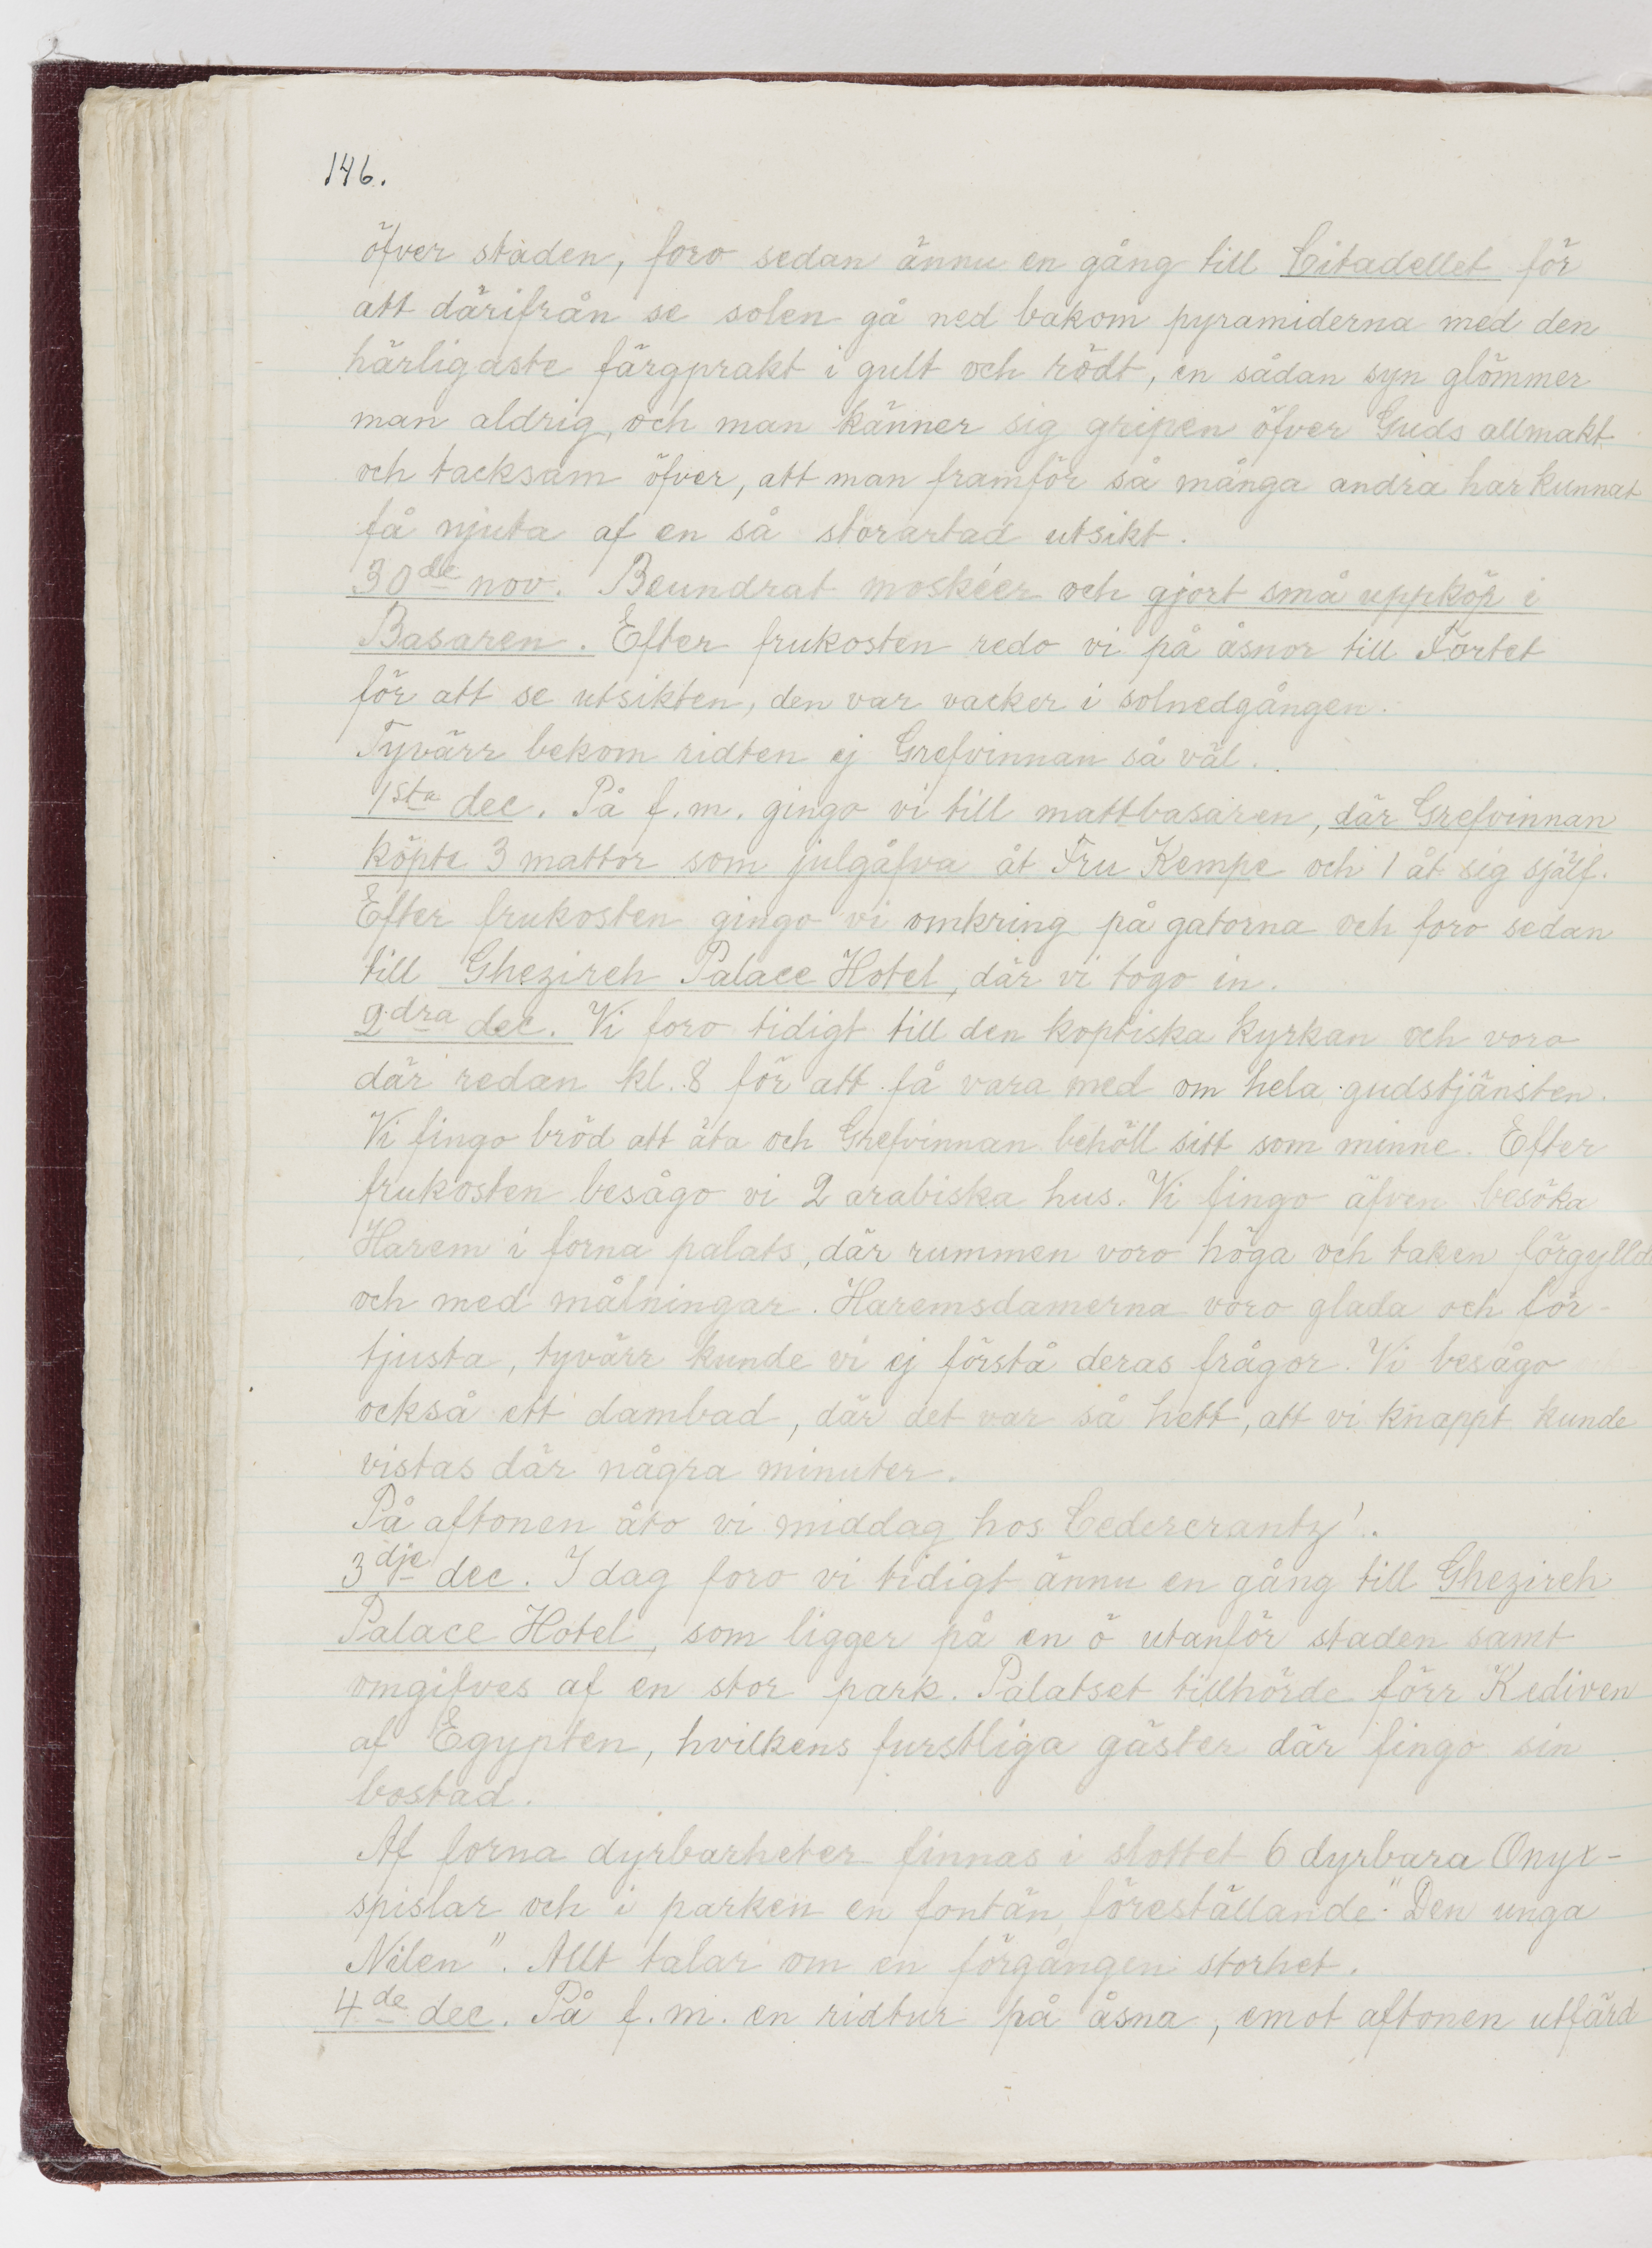 146.
öfver staden, foro sedan ännu en gång till Citadellet för
att därifrån se solen gå ned bakom pyramiderna med den
härligaste färgprakt i gult och rödt, en sådan syn glömmer
man aldrig, och man känner sig gripen öfver Guds allmakt
och tacksam öfver, att man framför så många andra har kunnat
få njuta af en så storartad utsikt.
30de nov. Beundrat moskéer och gjort små uppköp i
Basaren. Efter frukosten redo vi på åsnor till Fortet
för att se utsikten, den var vacker i solnedgången.
Tyvärr bekom ridten ej Grefvinnan så väl.
1sta dec. På f.m. gingo vi till mattbasaren, där Grefvinnan
köpte 3 mattor som julgåfva åt Fru Kempe och 1 åt sig själf.
Efter frukosten gingo vi omkring på gatorna och foro sedan
till Ghezireh Palace Hotel, där vi togo in.
2dra dec. Vi foro tidigt till den koptiska kyrkan och voro
där redan kl. 8 för att få vara med om hela gudstjänsten.
Vi fingo bröd att äta och Grefvinnan behöll sitt som minne. Efter
frukosten besågo vi 2 arabiska hus. Vi fingo äfven besöka
Harem i forna palats, där rummen voro höga och taken förgyllda
och med målningar. Haremsdamerna voro glada och för-
tjusta, tyvärr kunde vi ej förstå deras frågor. Vi besågo
också ett dambad, där det var så hett, att vi knappt kunde
vistas där några minuter.
På aftonen åto vi middag hos Cedercrantz'.
3dje dec. I dag foro vi tidigt ännu en gång till Ghezireh
Palace Hotel, som ligger på en ö utanför staden samt
omgifves af en stor park. Palatset tillhörde förr Kediven
af Egypten, hvilkens furstliga gäster där fingo sin
bostad.
Af forna dyrbarheter finnas i slottet 6 dyrbara Onyx-
spislar och i parken en fontän föreställande "Den unga
Nilen". Allt talar om en förgången storhet.
4de dec. På f.m. en ridtur på åsna, emot aftonen utfärd